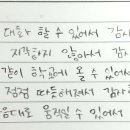 대화 할 수 있어서 감사
지각하지 않아서 감사
같이 학교에 올 수 있어서
점점 따듯해져서 감사
음대로 움직일 수 있어서